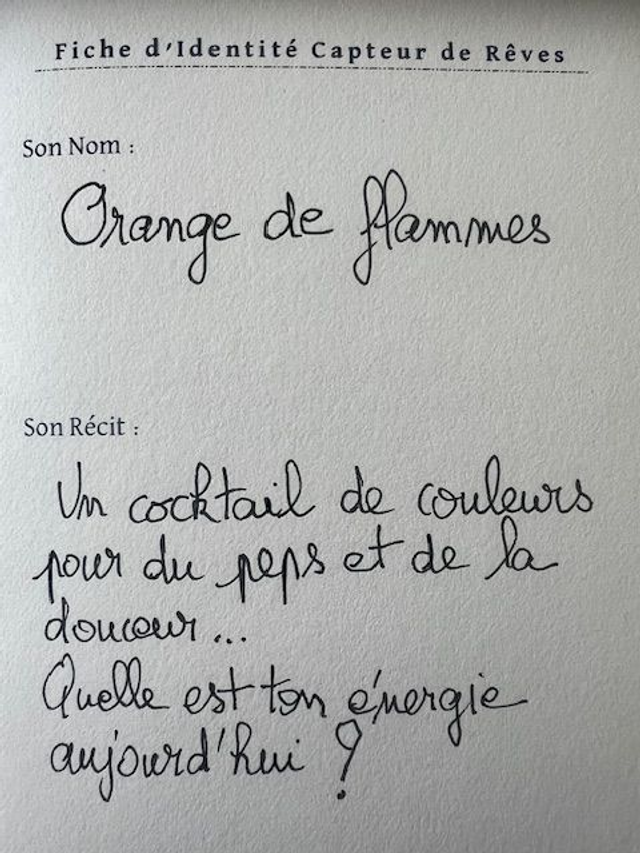 Fiche d'Identité Capteur de Rêves
Son Nom :
Orange de flammes
Son Récit :
Un cocktail de couleurs
pour du peps et de la
douceur...
Quelle est ton énergie
aujourd'hui ?